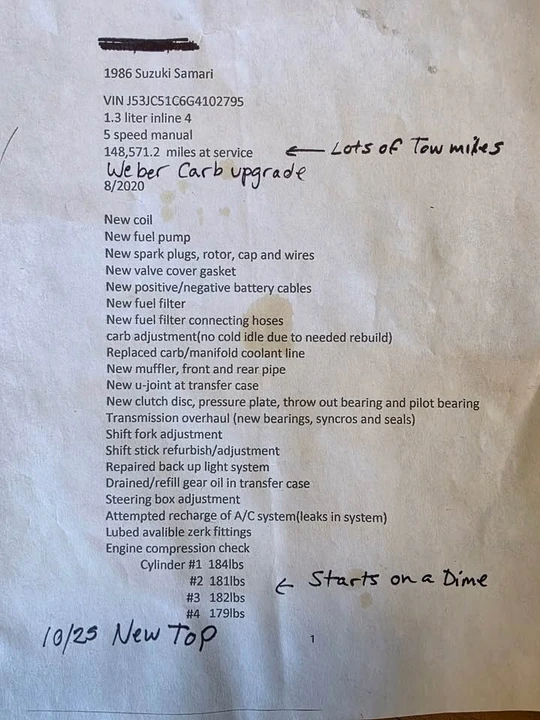 1986 Suzuki Samari
VIN J53JC51C6G4102795
1.3 liter inline 4
5 speed manual
148,571.2 miles at service ← Lots of Tow miles
Weber Carb upgrade
8/2020
New coil
New fuel pump
New spark plugs, rotor, cap and wires
New valve cover gasket
New positive/negative battery cables
New fuel filter
New fuel filter connecting hoses
carb adjustment(no cold idle due to needed rebuild)
Replaced carb/manifold coolant line
New muffler, front and rear pipe
New u-joint at transfer case
New clutch disc, pressure plate, throw out bearing and pilot bearing
Transmission overhaul (new bearings, syncros and seals)
Shift fork adjustment
Shift stick refurbish/adjustment
Repaired back up light system
Drained/refill gear oil in transfer case
Steering box adjustment
Attempted recharge of A/C system(leaks in system)
Lubed avalible zerk fittings
Engine compression check
Cylinder #1 184lbs
#2 181lbs ← Starts on a Dime
#3 182lbs
#4 179lbs
10/25 New Top
1